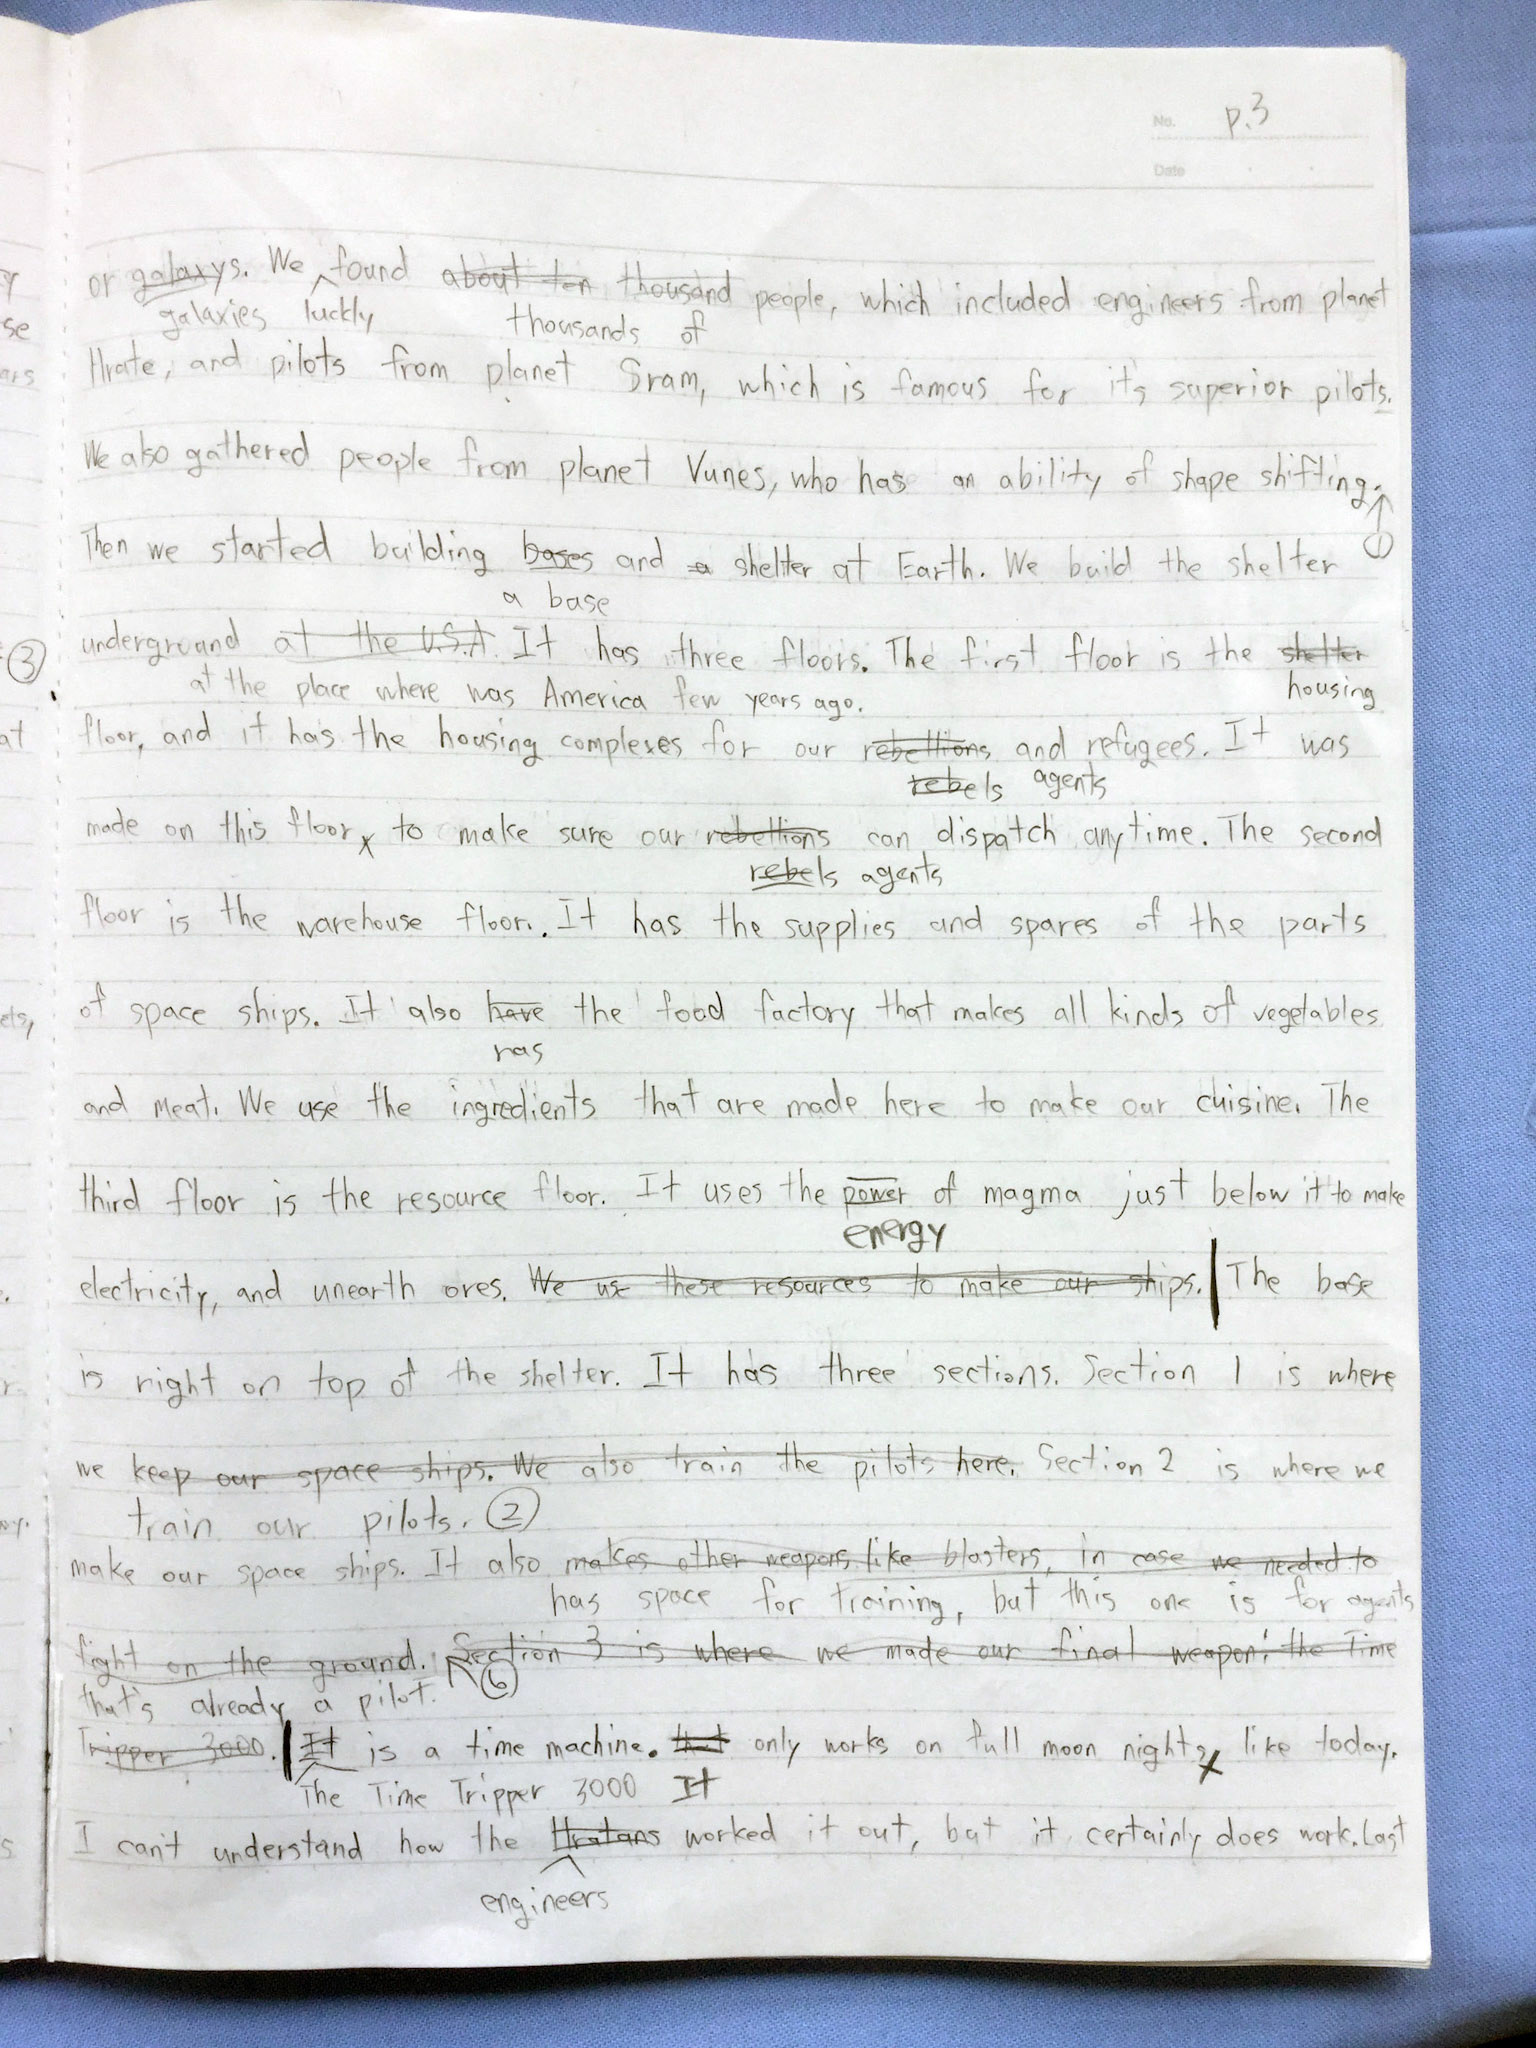 No. p.3
Date
or galaxys. We found about ten thousand people, which included engineers from planet
galaxies luckly thousands of
Hrate, and pilots from planet Sram, which is famous for it's superior pilots.
We also gathered people from planet Vunes, who has an ability of shape shifting.
Then we started building bases and a shelter at Earth. We build the shelter
a base
underground at the U.S.A. It has three floors. The first floor is the shelter
3
at the place where was America few years ago. housing
floor, and it has the housing complexes for our rebellions and refugees. It was
rebels agents
made on this floor, to make sure our rebellions can dispatch anytime. The second
rebels agents
floor is the warehouse floor. It has the supplies and spares of the parts
of space ships. It also have the food factory that makes all kinds of vegetables
has
and meat. We use the ingredients that are made here to make our cuisine. The
third floor is the resource floor. It uses the power of magma just below it to make
energy
electricity, and unearth ores. We use these resources to make our ships. The base
is right on top of the shelter. It has three sections. Section 1 is where
we keep our space ships. We also train the pilots here. Section 2 is where we
train our pilots. 2
make our space ships. It also makes other weapons like blasters, in case we needed to
has space for training, but this one is for agents
fight on the ground. Section 3 is where we made our final weapon: the Time
that's already a pilot. 6
Tripper 3000. It is a time machine. that only works on full moon nights, like today.
The Time Tripper 3000 It
I can't understand how the Hratans worked it out, but it certainly does work. Last
engineers